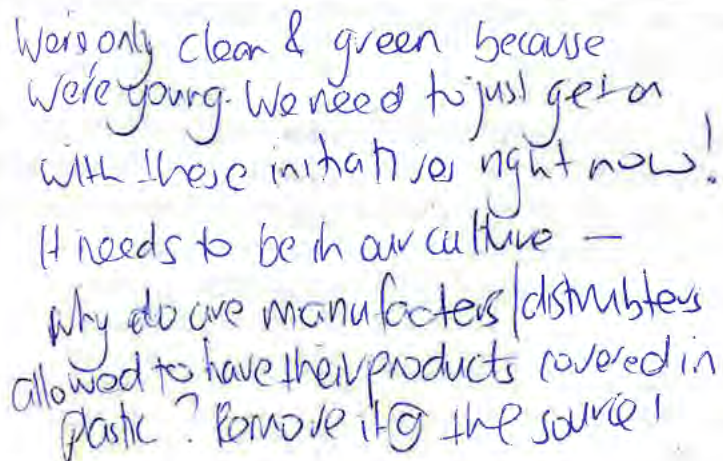 We're only clean & green because
we're young. We need to just get on
with these initiatives right now!
It needs to be in our culture —
why do are manufacters/distrubters
allowed to have their products covered in
plastic? Remove it @ the source!